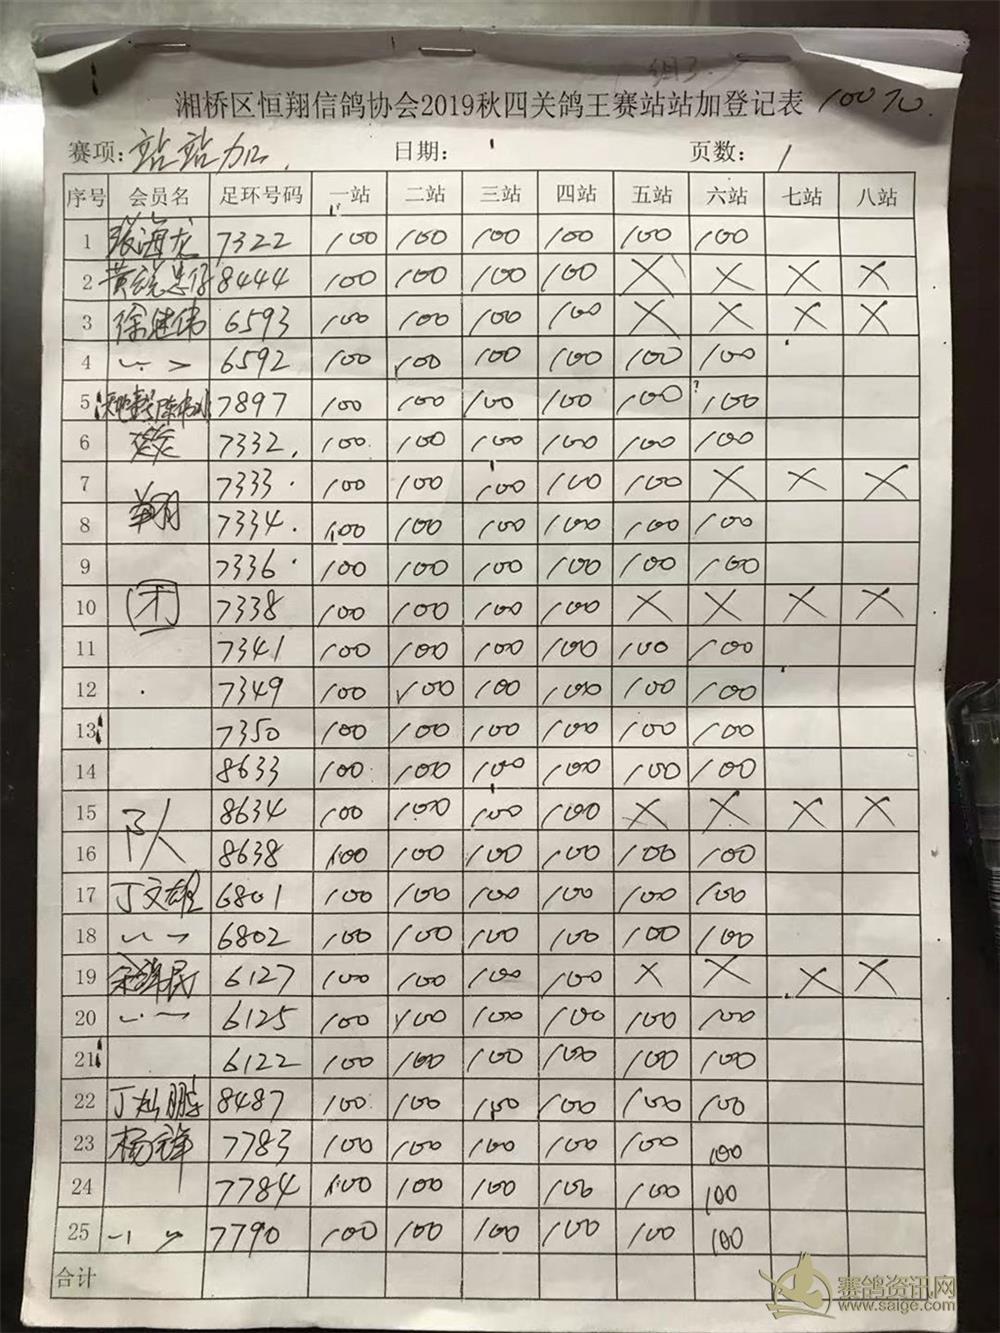 湘桥区恒翔信鸽协会2019秋四关鸽王赛站站加登记表 100元.
赛项: 站站加. 日期: 页数: 1
序号 会员名 足环号码 一站 二站 三站 四站 五站 六站 七站 八站
1 张海龙 7322 100 100 100 100 100 100
2 8444 100 100 100 100 X X X X
3 徐建伟 6593 100 100 100 100 X X X X
4 6592 100 100 100 100 100 100
5 7897 100 100 100 100 100 100
6 7332 100 100 100 100 100 100
7 翔 7333 100 100 100 100 100 X X X
8 7334 100 100 100 100 100 100
9 7336 100 100 100 100 100 100
10 7338 100 100 100 100 X X X X
11 7341 100 100 100 100 100 100
12 7349 100 100 100 100 100 100
13 7350 100 100 100 100 100 100
14 8633 100 100 100 100 100 100
15 队 8634 100 100 100 100 X X X X
16 8638 100 100 100 100 100 100
17 丁文雄 6801 100 100 100 100 100 100
18 6802 100 100 100 100 100 100
19 6127 100 100 100 100 X X X X
20 6125 100 100 100 100 100 100
21 6122 100 100 100 100 100 100
22 丁灿鹏 8487 100 100 100 100 100 100
23 杨锋 7783 100 100 100 100 100 100
24 7784 100 100 100 100 100 100
25 7790 100 100 100 100 100 100
合计
赛鸽资讯网
www.saige.com